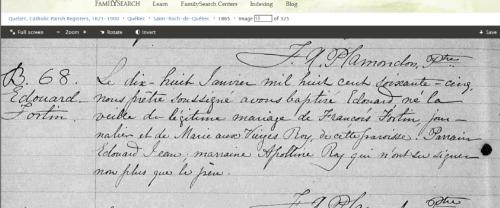 FAMILYSEARCH Learn FamilySearch Centers Indexing Blog
Quebec, Catholic Parish Registers, 1621-1900 › Québec › Saint-Roch-de-Québec › 1865 › Image of 325
Full screen − Zoom + Rotate Invert Save
F. A. Plamondon, Ptre
B. 68. Le dix-huit Janvier mil huit cent soixante-cinq,
Edouard nous prêtre soussigné avons baptisé Edouard, né la
Fortin. veille du légitime mariage de François Fortin, jour-
nalier et de Marie aux Vierges Roy, de cette paroisse. Parrain
Edouard Jean; marraine Apolline Roy qui n'ont su signer
non plus que le père.